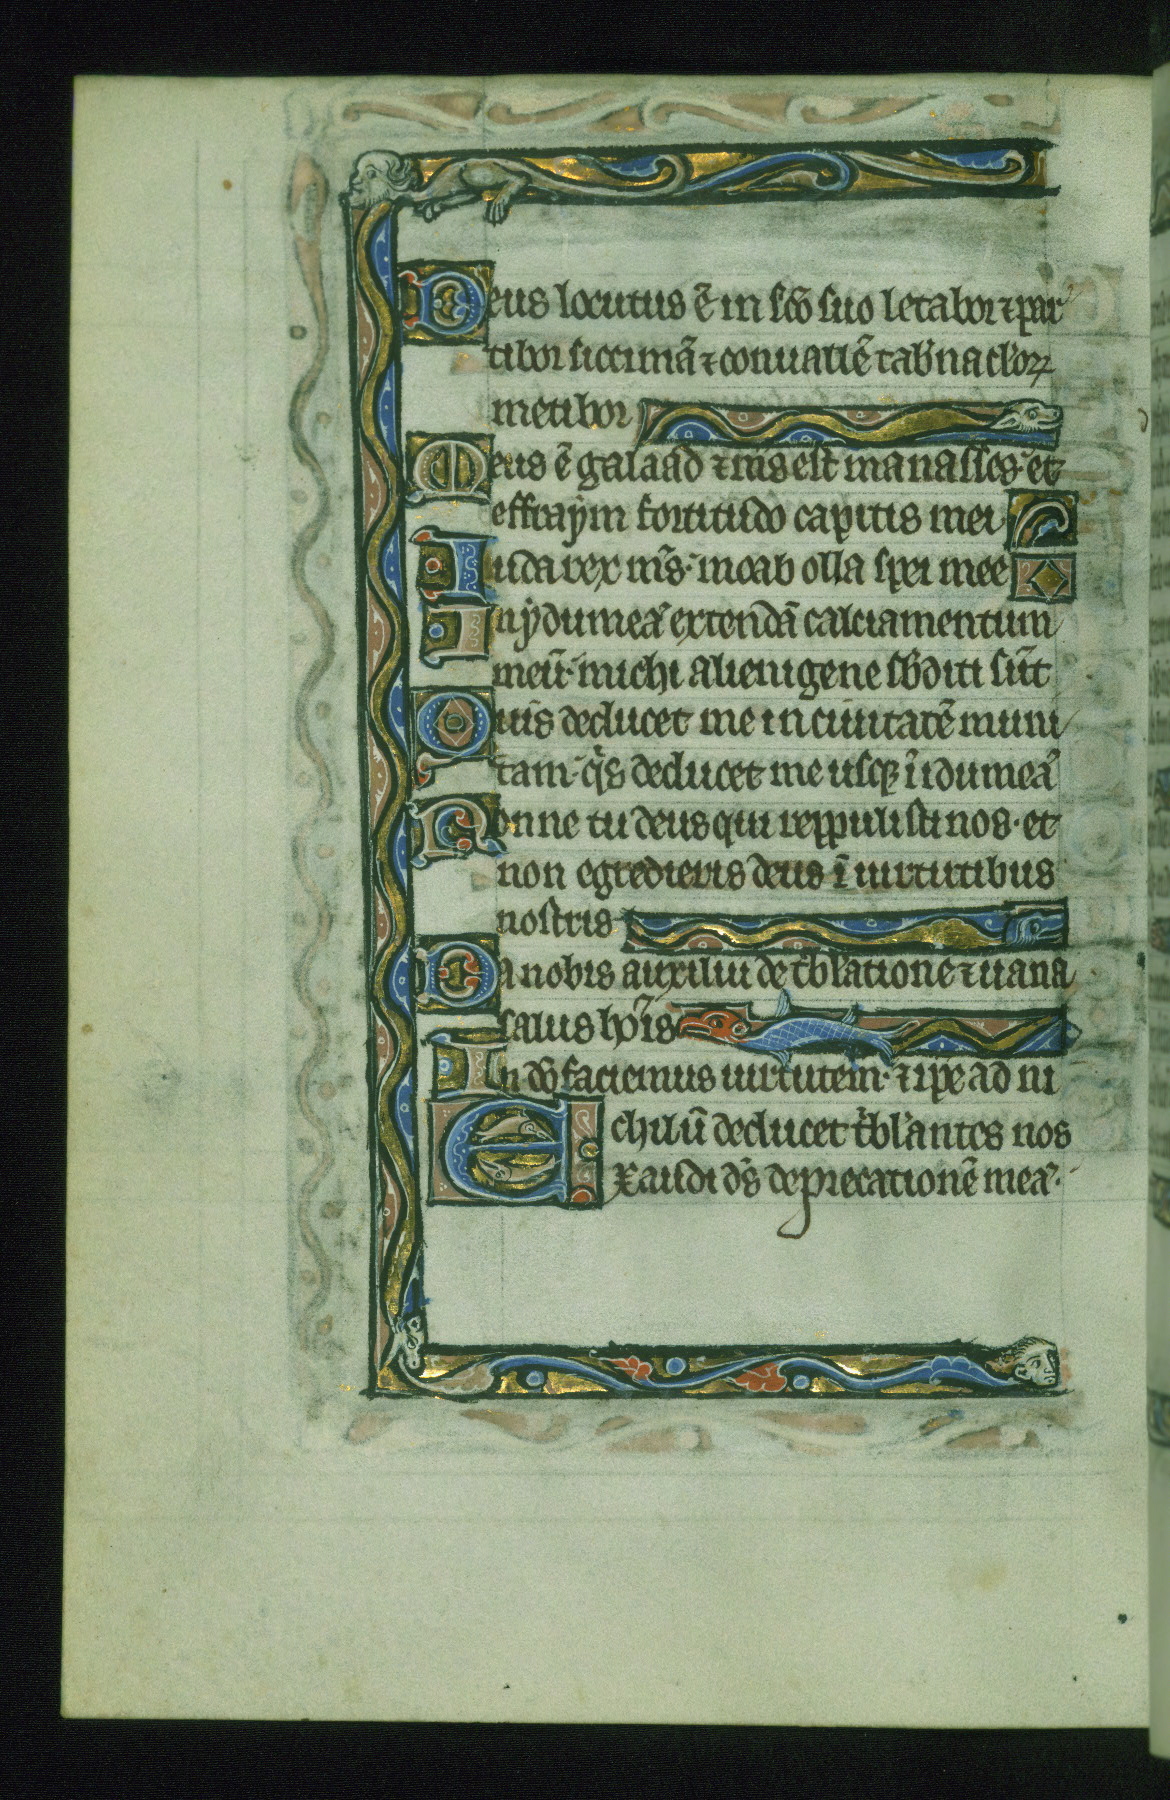 Deus locutus ē in sc̄o suo letabor ⁊ par
tibor siccimā ⁊ conuallē tab̄nacl'oꝝ
metibor
Meus ē galaad ⁊ m̄s est manasses· et
effraẏm fortitudo capitis mei
Iuda rex m̄s· moab olla spei mee
In ẏdumeā extendā calciamentum
meū· michi alienigene sb̄diti sūt
Quis deducet me in ciuitatē muni
tam· qͥs deducet me usqꝫ ī idumeā
Nonne tu deus qui reppulisti nos· et
non egredieris deus ī uirtutibus
nostris·
Da nobis auxiliū de tͥb'latione ⁊ uana
salus ho͞is
In do͞ faciemus uirtutem· ⁊ ip̄e ad ni
chilū deducet tͥb'lantes nos
Exaudi d̄s deprecationē meā·